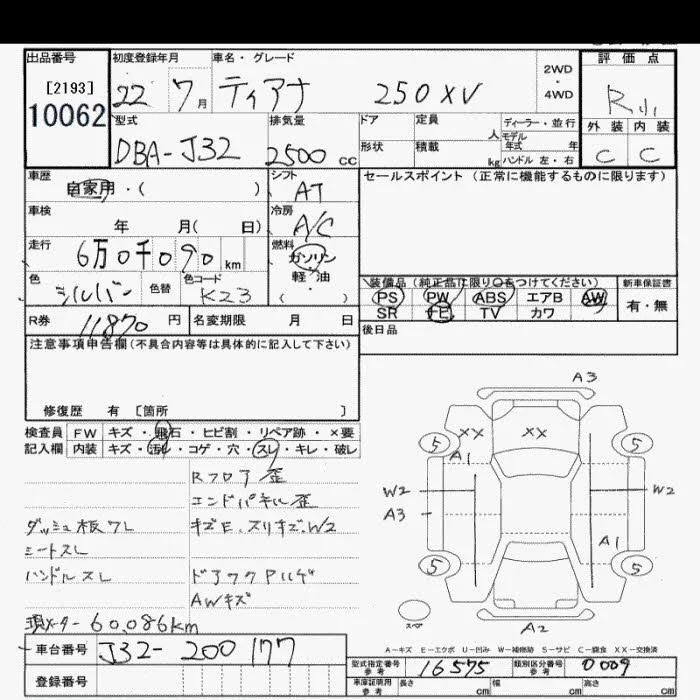 出品番号 初度登録年月 車名・グレード 2WD・4WD 評価点
[2193]
10062 22 7月 ティアナ 250XV R小
型式 排気量 ドア 定員 人 ディーラー・並行 外装 内装
DBA-J32 2500cc 形状 積載 kg モデル年式 年 ハンドル 左・右 C C
車歴 自家用・( ) シフト AT セールスポイント(正常に機能するものに限ります)
車検 年 月( 日) 冷房 A/C
走行 6万0千090km 燃料 ガソリン 軽・油 ( )
色 シルバー 色替 色コード K23 装備品(純正品に限り○をつけてください) 新車保証書
PS PW ABS エアB AW 有・無
SR TV カワ
R券 11870円 名変期限 月 日 後日品
注意事項申告欄(不具合内容等は具体的に記入して下さい)
修復歴 有 [箇所 ]
検査員 FW キズ・飛石・ヒビ割・リペア跡・×要
記入欄 内装 キズ・汚レ・コゲ・穴・スレ・キレ・破レ
Rフロア歪
エンドパネル歪
ダッシュ板ワレ キズE、スリキズ、W2
シートスレ
ハンドルスレ
AWキズ
現メーター60,086km
A3
XX XX
5 5
A1
W2 W2
A3
A1
5 5
スペア
A2
A-キズ E-エクボ U-凹み W-補修跡 S-サビ C-腐食 XX-交換済
車台番号 J32-200177
型式指定番号 参考 16575 類別区分番号 参考 0009
登録番号 車庫証明用 参考 長さ cm 幅 cm 高さ cm